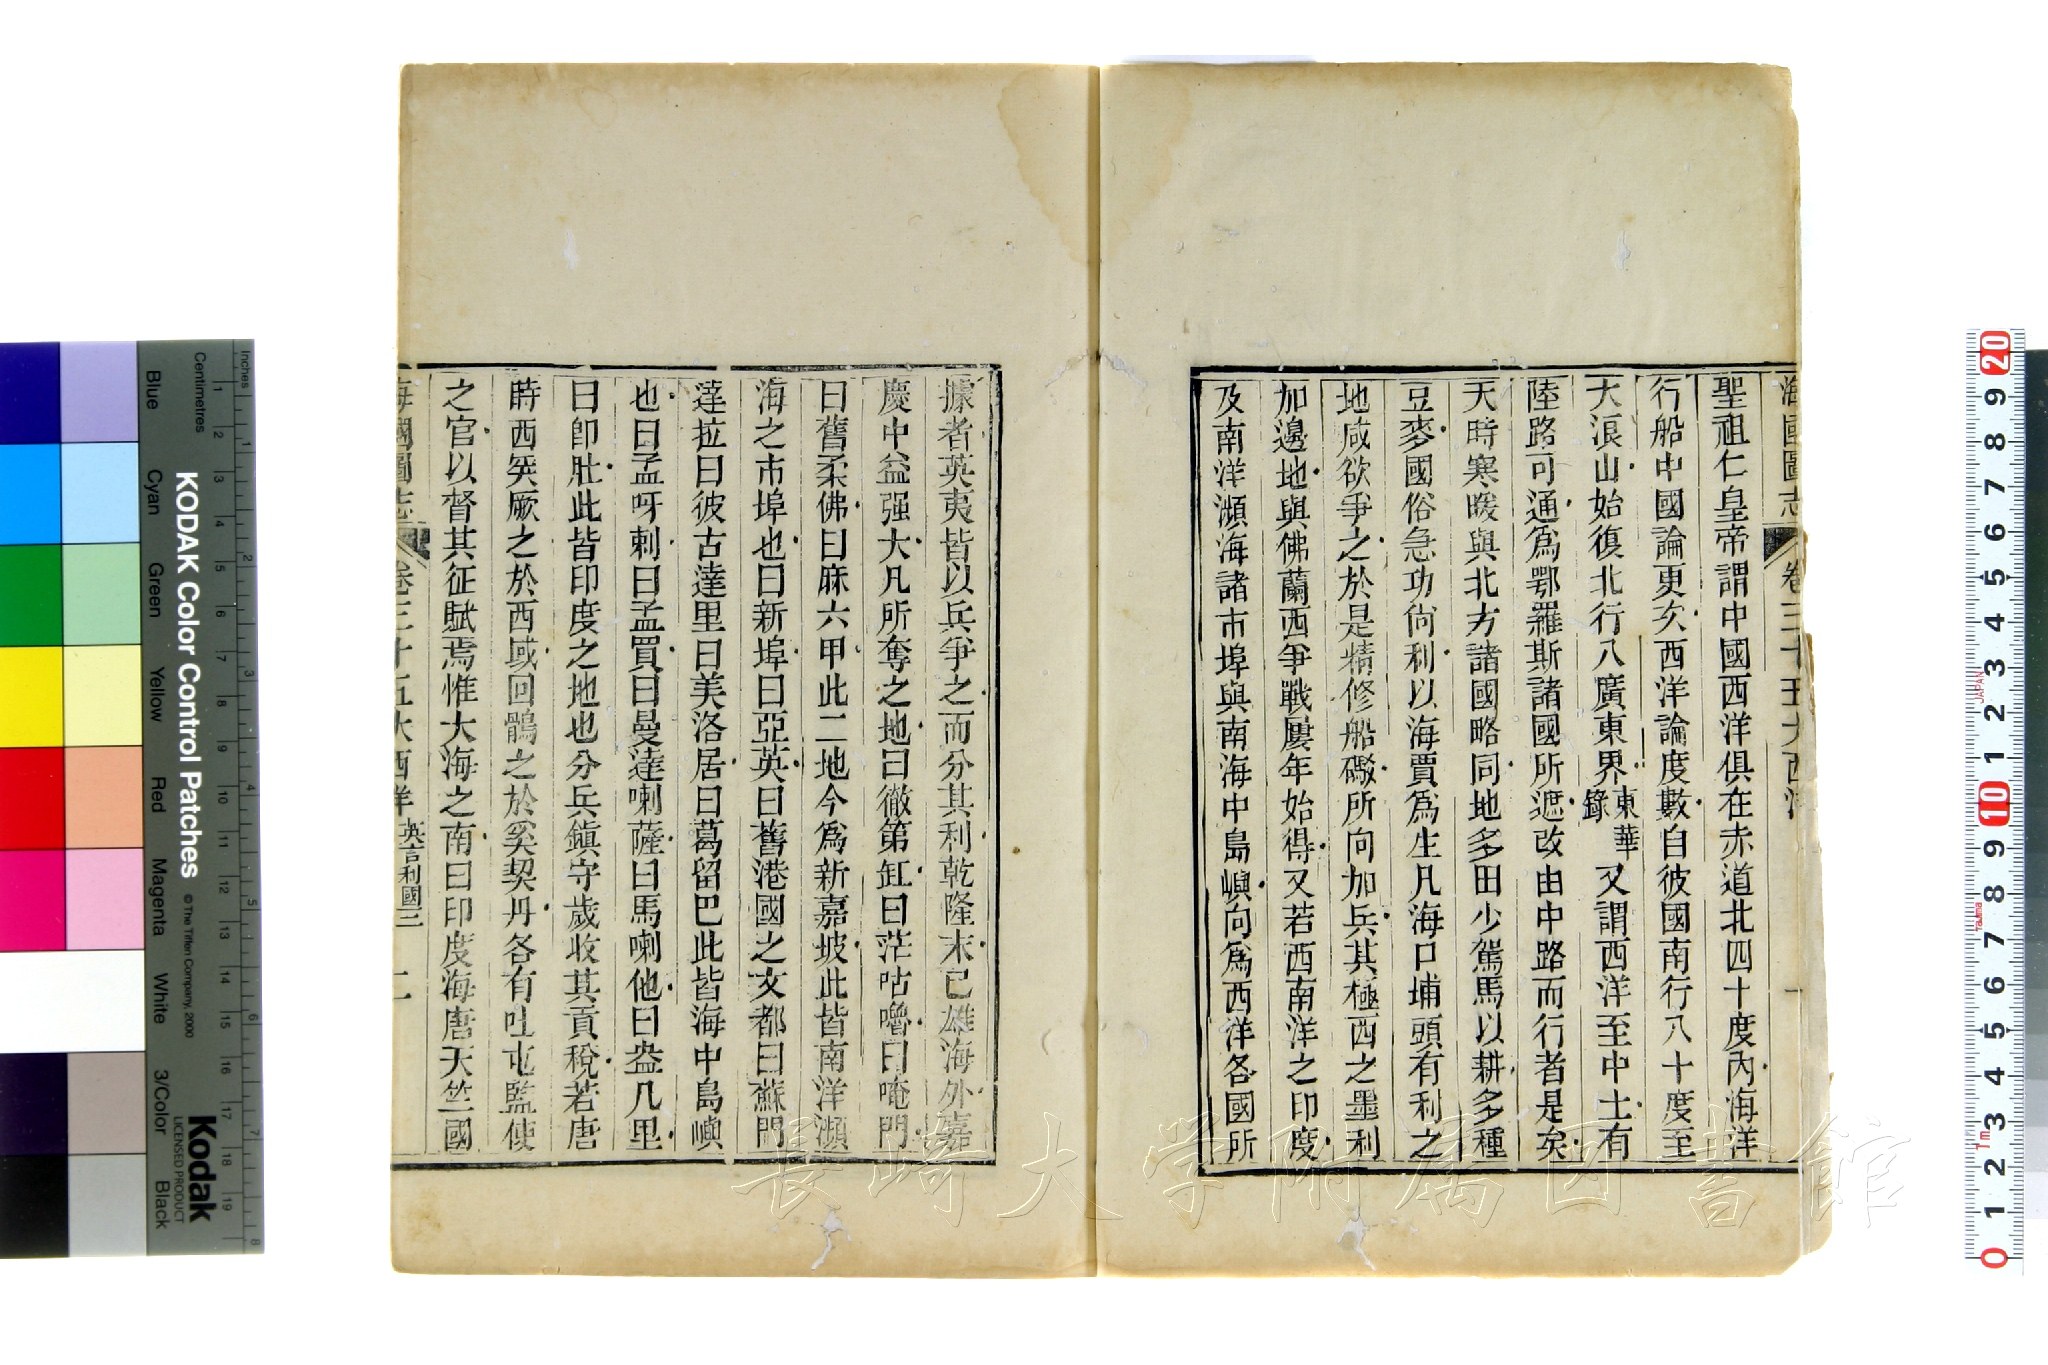 海國圖志 卷三十五大西洋 一
聖祖仁皇帝謂中國西洋俱在赤道北四十度內海洋
行船中國論更次西洋論度數自彼國南行八十度至
大浪山始復北行八廣東界東華錄又謂西洋至中土有
陸路可通爲鄂羅斯諸國所遮改由中路而行者是矣
天時寒暖與北方諸國略同地多田少駕馬以耕多種
豆麥國俗急功尙利以海賈爲生凡海口埔頭有利之
地咸欲爭之於是精修船礮所向加兵其極西之墨利
加邊地與佛蘭西爭戰屢年始得又若西南洋之印度
及南洋瀕海諸市埠與南海中島嶼向爲西洋各國所
據者英夷皆以兵爭之而分其利乾隆末已雄海外嘉
慶中益强大凡所奪之地曰徹第缸曰茫咕嚕曰唵門
曰舊柔佛曰麻六甲此二地今爲新嘉坡此皆南洋瀕
海之市埠也曰新埠曰亞英曰舊港國之文都曰蘇門
達拉曰彼古達里曰美洛居曰葛留巴此皆海中島嶼
也曰孟呀剌曰孟買曰曼達喇薩曰馬喇他曰盎几里
曰卽肚此皆印度之地也分兵鎮守歲收其貢稅若唐
時西突厥之於西域回鶻之於奚契丹各有吐屯監使
之官以督其征賦焉惟大海之南曰印度海唐天竺國
海國圖志 卷三十五大西洋 英吉利國三 二
長崎大学附属図書館
KODAK Color Control Patches
© The Tiffen Company, 2000
Kodak
LICENSED PRODUCT
Inches
Centimetres
1 2 3 4 5 6 7 8
1 2 3 4 5 6 7 8 9 10 11 12 13 14 15 16 17 18 19
Blue Cyan Green Yellow Red Magenta White 3/Color Black
20 9 8 7 6 5 4 3 2 1 10 9 8 7 6 5 4 3 2 1 0
JAPAN
Tajima
1m